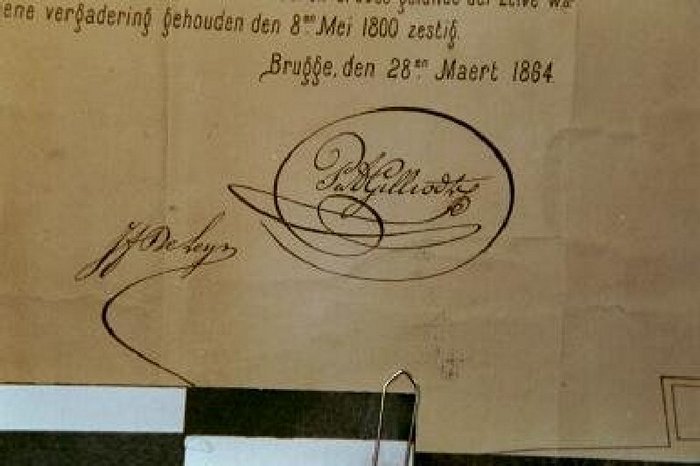 gehouden der Leive wa
ene vergadering gehouden den 8sten Mei 1800 zestig.
Brugge, den 28en Maert 1864.
P. A. Gilliodts
JJ De Leyn